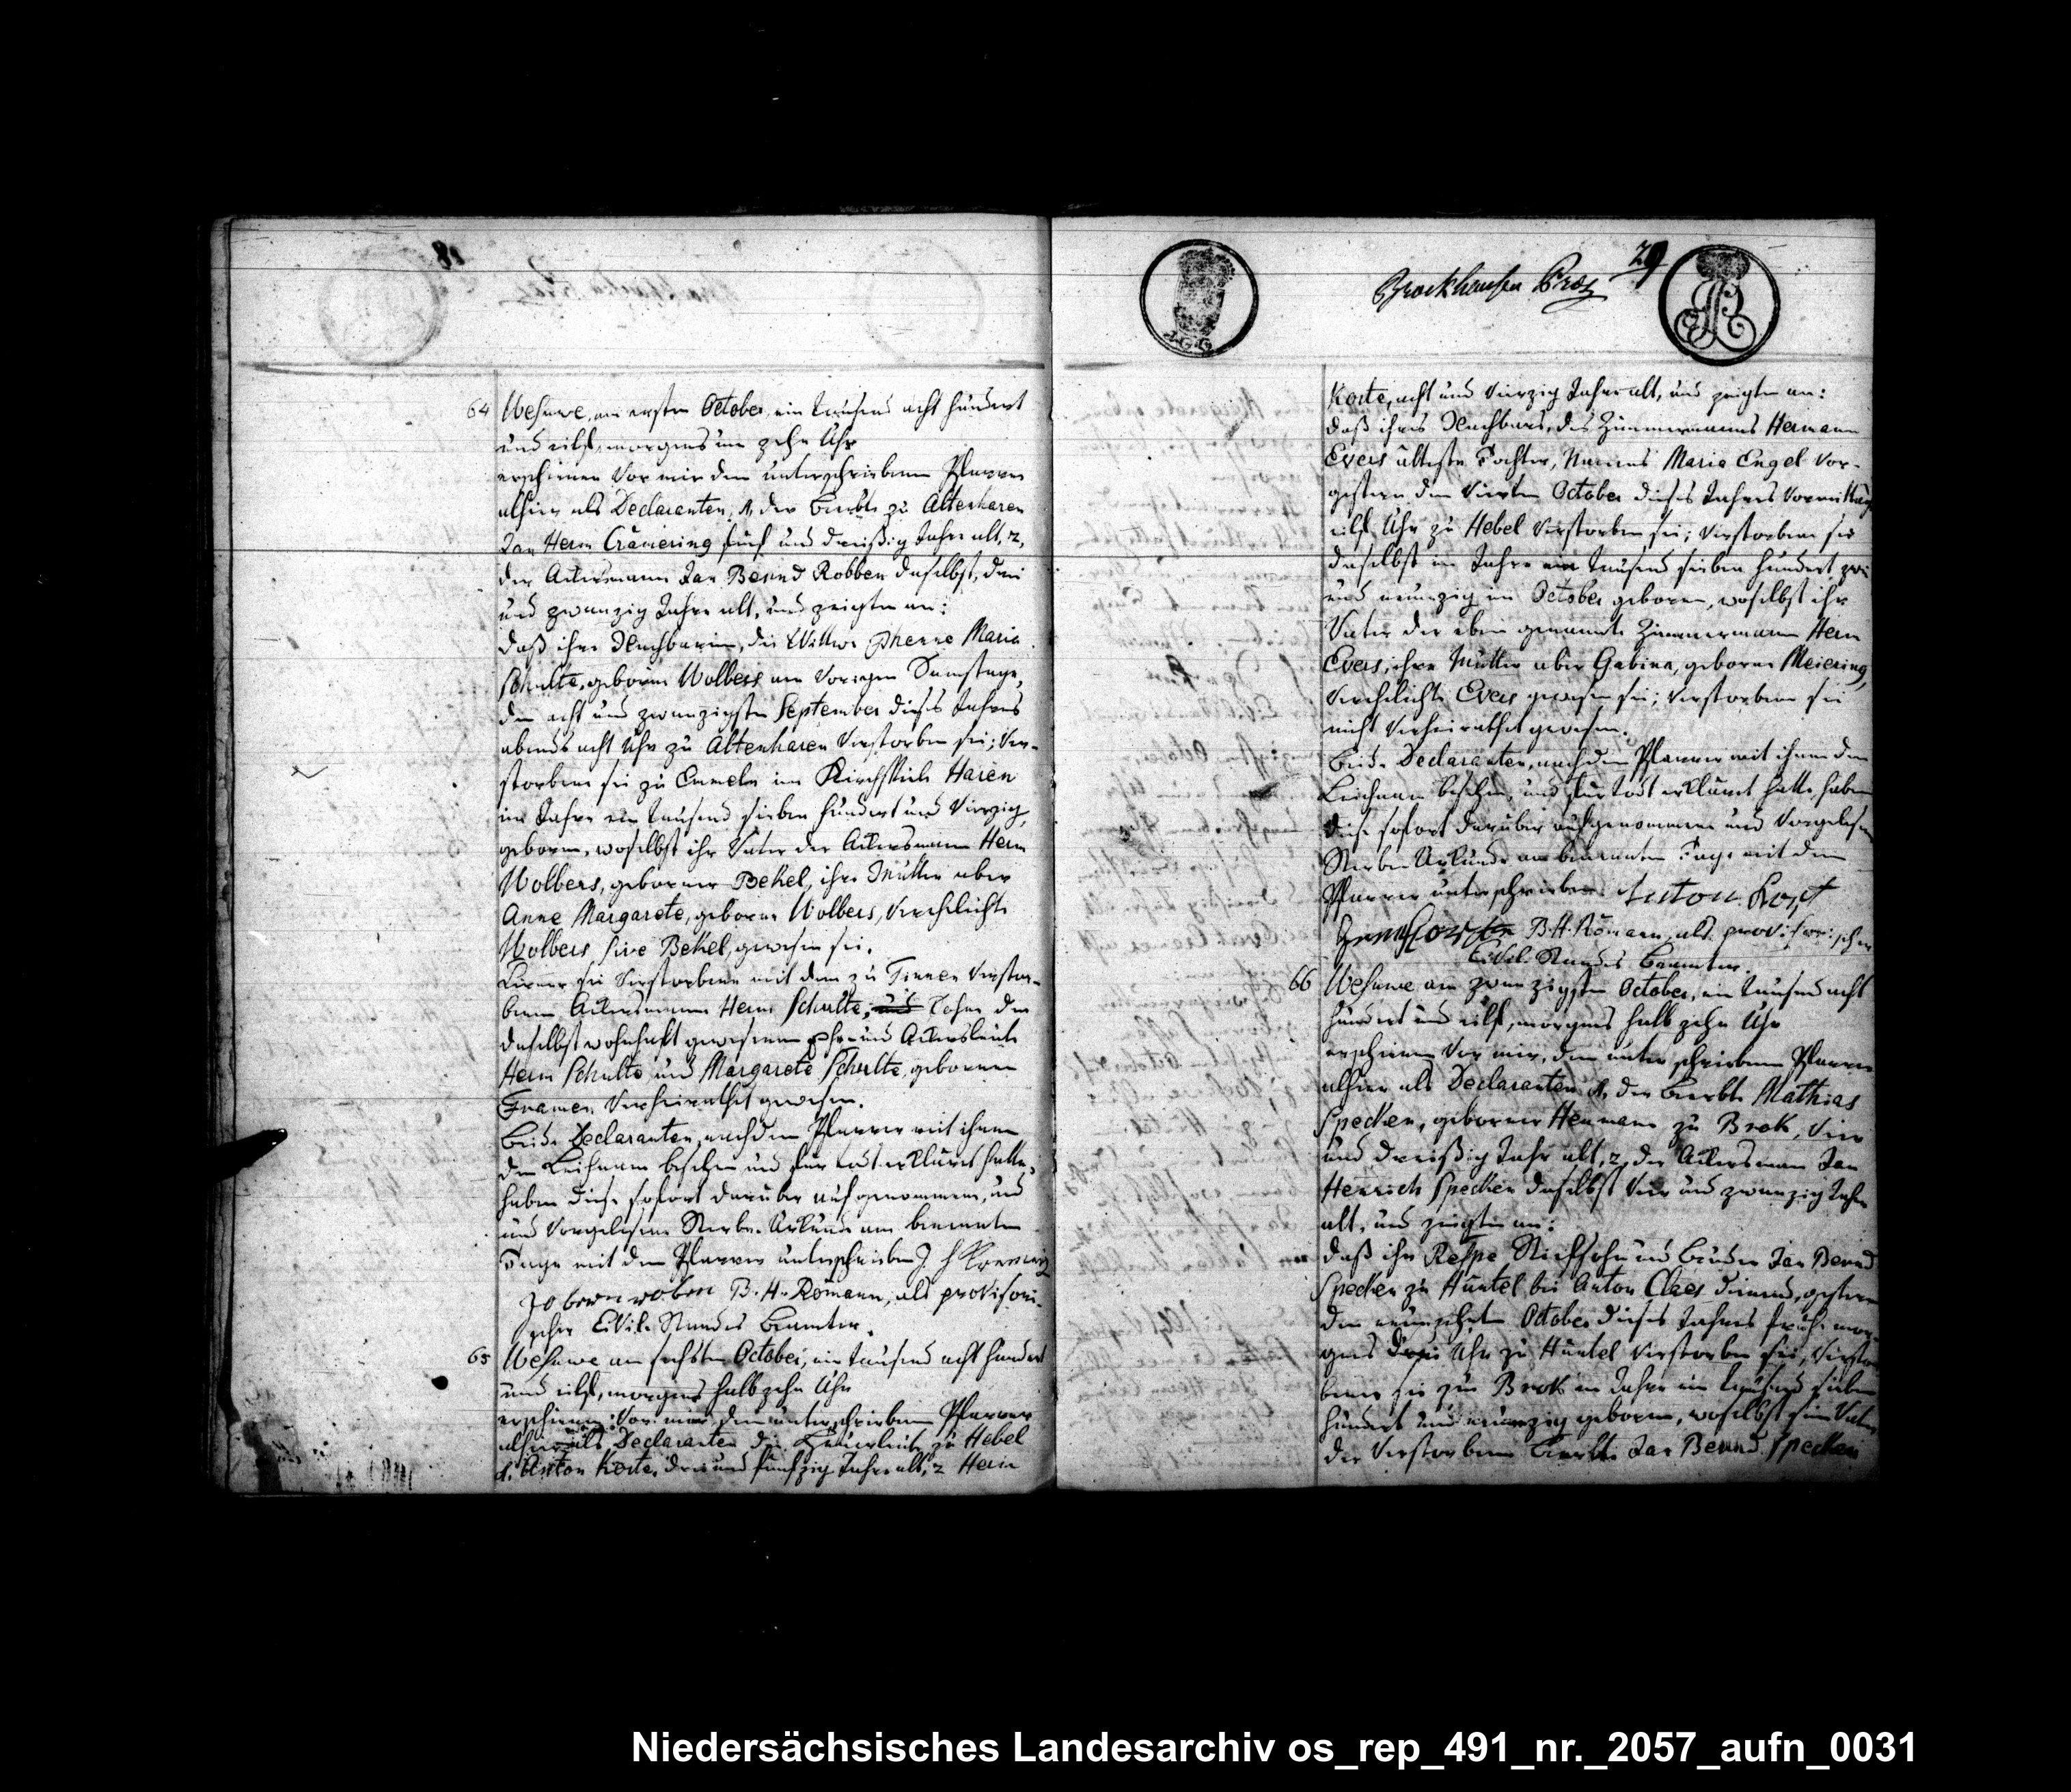 64
Wesuwe, am ersten October, ein tausend acht hundert
und eilf, morgens um zehn Uhr
erschienen vor mir dem unterschriebenen Pfarrer
alhier als Declaranten, 1, der Beerbte zu Altenharen
Jan Herm Cramering fünf und dreißig Jahre alt, 2,
der Ackersmann Jan Bernd Robben daselbst, drei
und zwanzig Jahre alt, und zeigten an:
daß ihre Nachbarin, die Wittwe Maria
Schulte, geborne Wolbers am vorigen Samstage,
den acht und zwanzigsten September dieses Jahres
abends acht Uhr zu Altenharen verstorben sei; Ver-
storbene sei zu Emmeln im Kirchspiele Haren
im Jahre ein tausend sieben hundert und vierzig,
geboren, woselbst ihr Vater der Ackersmann Herm
Wolbers, geborner Bekel, ihre Mutter aber
Anne Margarete, geborne Wolbers, verehelichte
Wolbers sive Bekel, gewesen sei.
Ferner sei Verstorbene mit dem zu verstor-
benen Ackersmann Herm Schulte, Sohne der
daselbst wohnhaft gewesenen Ehe- und Ackersleute
Herm Schulte und Margarete Schulte, gebornen
verheirathet gewesen.
Beide Declaranten, nachdem Pfarrer mit ihnen
den Leichnam besehen und für todt erklärt hatte,
haben diese sofort darüber aufgenommene, und
und vorgelesene Sterbe-Urkunde am benannten
Tage mit dem Pfarrer unterschrieben J H
B. H. Römann, als provisori-
scher Civil-Standes Beamter.
65
Wesuwe am sechsten October, ein tausend acht hundert
und eilf, morgens halb zehn Uhr
erschienen vor mir, dem unterschriebenen Pfarrer
alhier als Declaranten die Heuerleute zu Hebel
1, Anton Korte, drei und fünfzig Jahre alt, 2 Herm
29
Brockhausen
Korte, acht und vierzig Jahre alt, und zeigten an:
daß ihres Nachbars, des Zimmermanns Hermann
Evers älteste Tochter, Namens Maria Engel vor-
gestern den vierten October dieses Jahres Vormittags
eilf Uhr zu Hebel verstorben sei; Verstorbene sei
daselbst im Jahre ein tausend sieben hundert zwei
und neunzig im October geboren, woselbst ihr
Vater der eben genannte Zimmermann Herm
Evers, ihre Mutter aber Gabina, geborne Meiering,
verehelichte Evers gewesen sei; Verstorbene sei
nicht verheirathet gewesen.
Beide Declaranten, nachdem Pfarrer mit ihnen den
Leichnam besehen, und für todt erklärt hatte, haben
diese sofort darüber aufgenommene und vorgelesene
Sterbe-Urkunde am benannten Tage mit dem
Pfarrer unterschrieben. Anton
B. H. Römann, als provisorischer
Civil-Standes Beamter.
66
Wesuwe am zwanzigsten October, ein tausend acht
hundert und eilf, morgens halb zehn Uhr
erschienen vor mir, dem unterschriebenen Pfarrer
alhier als Declaranten 1, der Beerbte Mathias
Specken, geborner Henmann zu Brok, vier
und dreißig Jahr alt, 2, der Ackersmann Jan
Henrich Specken daselbst vier und zwanzig Jahre
alt, und zeigten an:
daß ihr Respe Stiefsohn und Bruder Jan Bernd
Specken zu Hüntel bei Anton Claes dienend, gestern
den neunzehnten October dieses Jahres frühe mor-
gens drei Uhr zu Hüntel verstorben sei, Verstor-
bener sei zu Brok im Jahre ein tausend sieben
hundert und neunzig geboren, woselbst sein Vater
der verstorbene Beerbte Jan Bernd Specken
Niedersächsisches Landesarchiv os_rep_491_nr._2057_aufn_0031